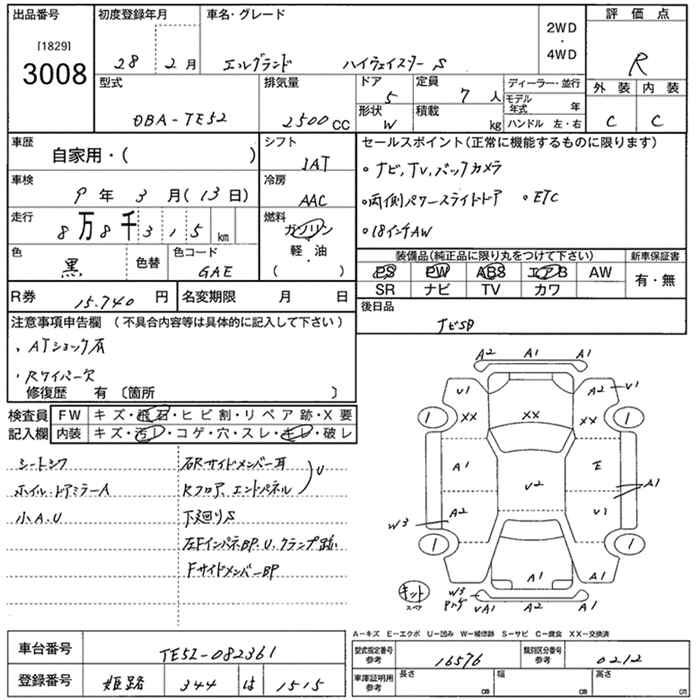 出品番号 初度登録年月 車名・グレード 2WD・4WD 評価点
[1829] 3008 28 2月 エルグランド ハイウェイスター S R
型式 排気量 ドア 5 定員 7人 ディーラー・並行 外装 内装
DBA-TE52 2500CC 形状 W 積載 kg モデル年式 年 C C
ハンドル 左・右
車歴 自家用・( ) シフト セールスポイント(正常に機能するものに限ります)
IAT ・ナビ,TV,バックカメラ
車検 9年3月(13日) 冷房 AAC ・両側パワースライドドア ・ETC
走行 8万8千315km 燃料 ガソリン 軽・油 ( ) ・18インチAW
色 黒 色替 色コード GAE 装備品(純正品に限り丸をつけて下さい) 新車保証書
PS PW ABS エアB AW 有・無
SR ナビ TV カワ
R券 15.740円 名変期限 月 日 後日品
ナビSD
注意事項申告欄 (不具合内容等は具体的に記入して下さい)
・ATショック有
・Rワイパー欠
修復歴 有 〔箇所 〕
検査員 FW キズ・飛石・ヒビ割・リペア跡・X要
記入欄 内装 キズ・汚レ・コゲ・穴・スレ・キレ・破レ
シートシワ 右Rサイドメンバー耳
ホイル・ドアミラーA Rフロア,エンドパネル U
小A.U 下廻りS
左FインパネBP.U,クランプ跡
FサイドメンバーBP
A2 A1 A1
V1 A2 V1
1 XX XX XX 1
A1 E
V2 A1
W3 A2 V1
1 1
A1 A1
キット W3
スペア VA1 A2 A1
A-キズ E-エクボ U-凹み W-補修跡 S-サビ C-腐食 XX-交換済
車台番号 TE52-082361 型式指定番号 参考 16576 類別区分番号 参考 0212
登録番号 姫路 344 は 1515 車庫証明用 参考 長さ cm 幅 cm 高さ cm